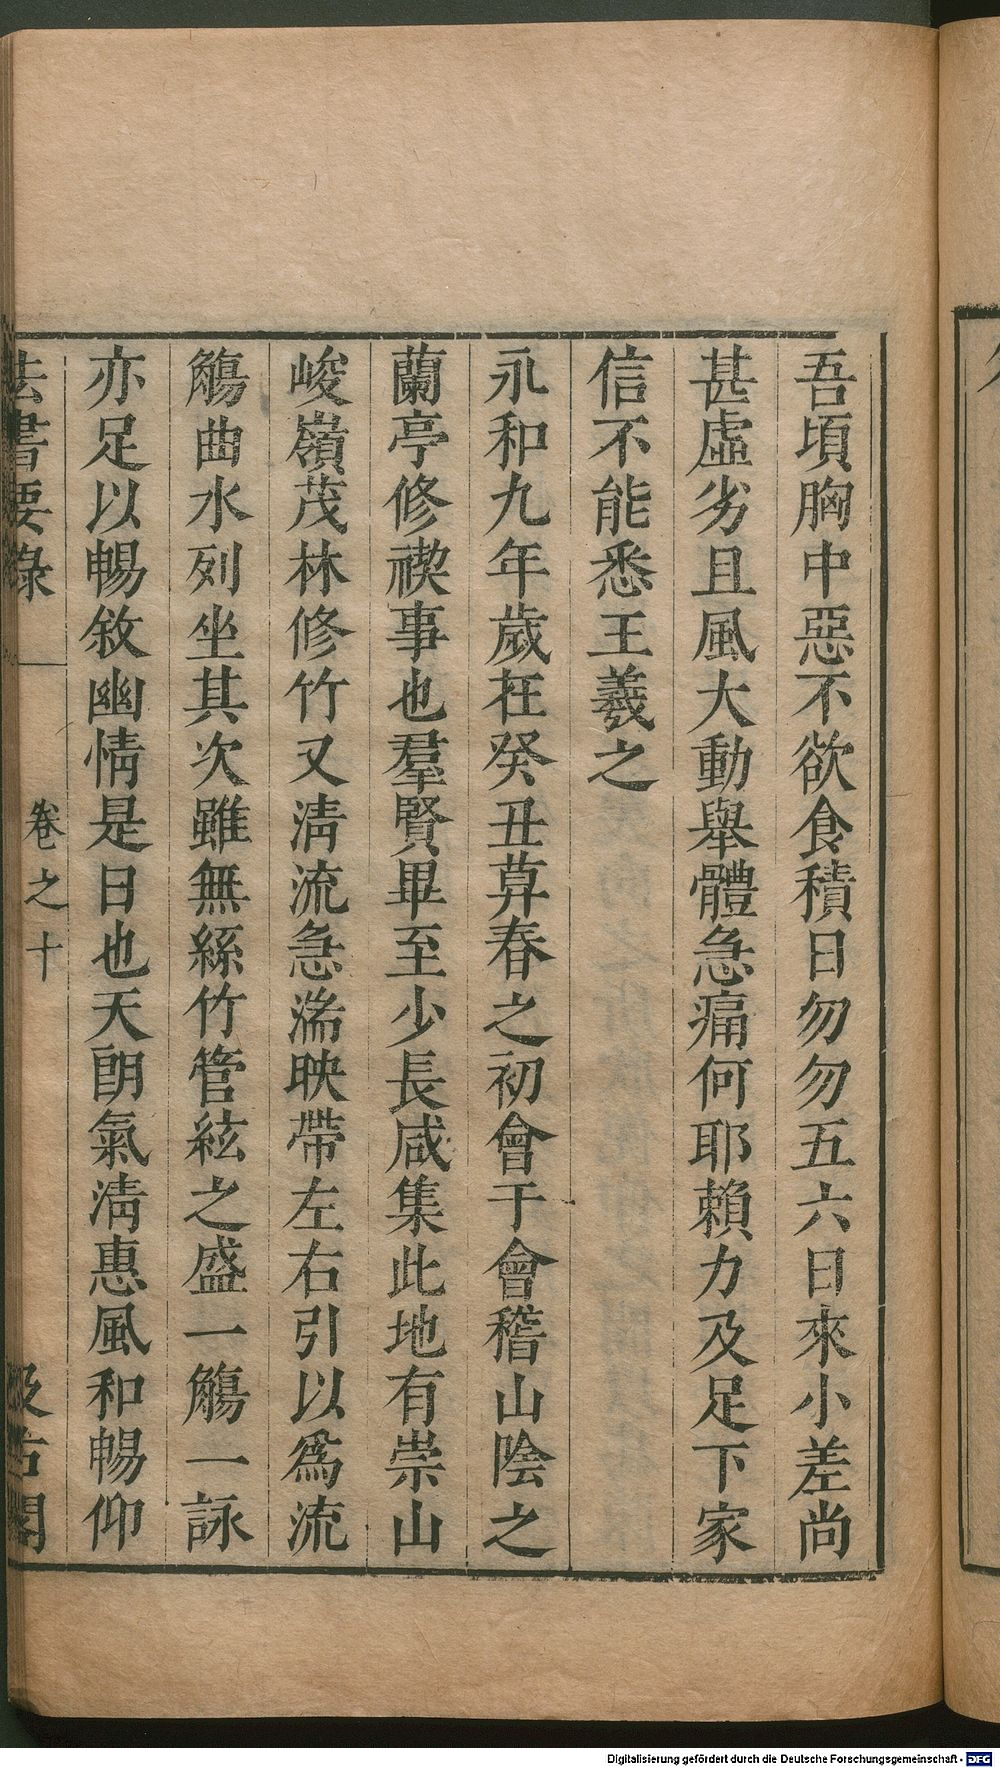 吾頃胸中惡不欲食積日勿勿五六日來小差尚
甚虛劣且風大動舉體急痛何耶賴力及足下家
信不能悉王羲之
永和九年歲在癸丑暮春之初會于會稽山陰之
蘭亭修禊事也羣賢畢至少長咸集此地有崇山
峻嶺茂林修竹又淸流急湍映帶左右引以爲流
觴曲水列坐其次雖無絲竹管絃之盛一觴一詠
亦足以暢敘幽情是日也天朗氣淸惠風和暢仰
法書要錄 卷之十 汲古閣
Digitalisierung gefördert durch die Deutsche Forschungsgemeinschaft - DFG